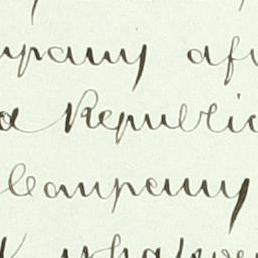 mpany af
a Republic
Company
whatever